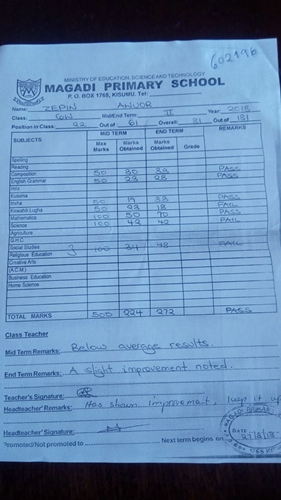 602196
MINISTRY OF EDUCATION, SCIENCE AND TECHNOLOGY
MAGADI PRIMARY SCHOOL
P. O. BOX 1765, KISUMU. Tel:
Name: ZEPIN ANUOR
Class: 6W Mid/End Term: II Year: 2018
Position in Class: 22 Out of 61 Overall: 81 Out of 181
SUBJECTS MID TERM END TERM REMARKS
Max Marks Marks Obtained Marks Obtained Grade
Spelling
Reading
Composition 50 30 32 PASS
English Grammar 50 23 28 PASS
PHV
Kusoma
Insha 50 19 33 PASS
Kiswahili Lugha 50 23 18 FAIL
Mathematics 100 50 70 PASS
Science 100 42 42 FAIL
Agriculture
G.H.C.
Social Studies
Religious Education } 100 34 48 FAIL
Creative Arts
(A.C.M)
Business Education
Home Science
TOTAL MARKS 500 224 272 PASS
Class Teacher
Mid Term Remarks: Below average results.
End Term Remarks: A slight improvement noted.
Teacher's Signature:
Headteacher Remarks: Has shown improvement, keep it up
Headteacher Signature:
DATE
Promoted/Not promoted to Next term begins on